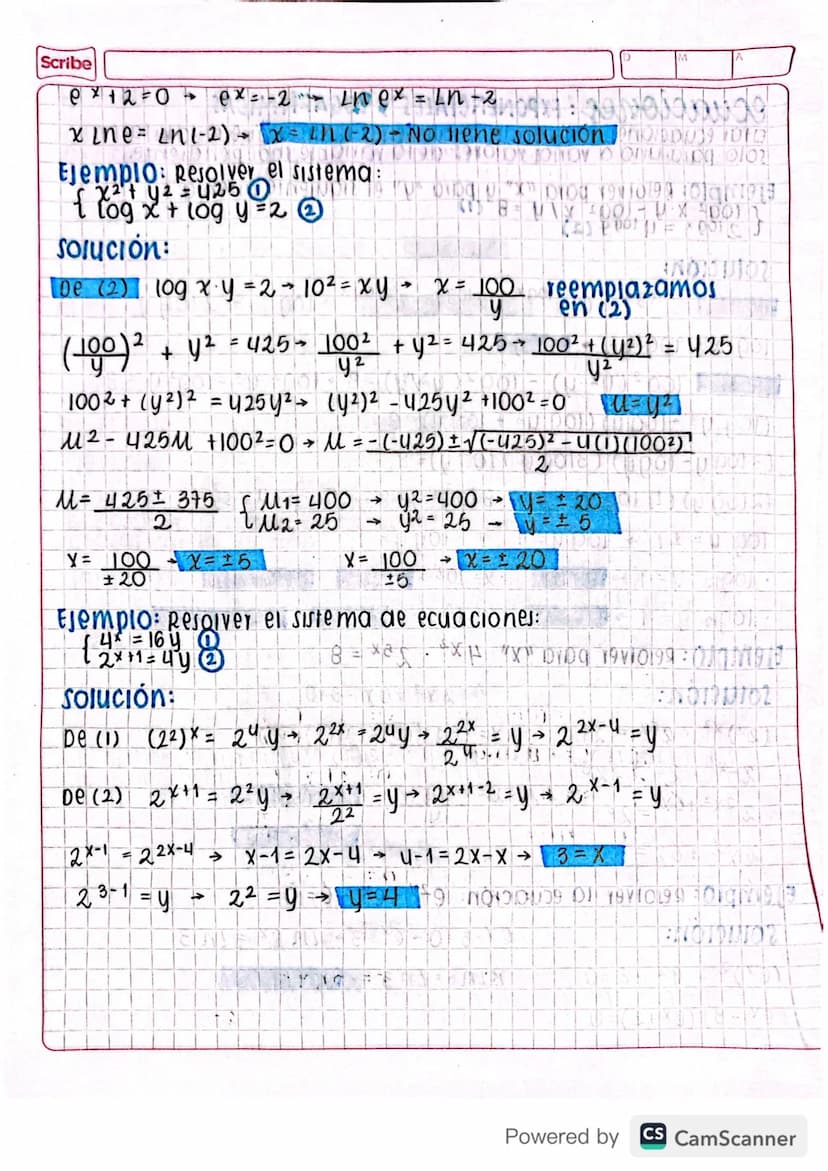 Scribe
D M A
e^x+2=0 → e^x=-2 → Ln e^x = Ln -2
x Ln e= Ln(-2) → x= Ln(-2) → No tiene solución
Ejemplo: Resolver el sistema:
{ x²+ y²= 425 ①
{ log x + log y =2 ②
Solución:
De (2) log x·y =2 → 10²= xy → x= 100/y reemplazamos en (2)
(100/y)² + y² = 425 → 100²/y² + y² = 425 → (100²+(y²)²)/y² = 425
100²+ (y²)² = 425y² → (y²)² -425y² +100²=0 u=y²
u²- 425u +100²=0 → u = (-(-425)±√((-425)²-4(1)(100²)))/2
u= (425± 375)/2 { u₁= 400 → y²=400 → y= ± 20
{ u₂= 25 → y²= 25 → y= ± 5
x= 100/±20 → x=±5 x= 100/±5 → x=± 20
Ejemplo: Resolver el sistema de ecuaciones:
{ 4^x =16y ①
{ 2^x+1= 4y ②
Solución:
De (1) (2²)^x = 2⁴y → 2^2x =2⁴y → 2^2x/2⁴ = y → 2^2x-4 =y
De (2) 2^x+1 = 2²y → 2^x+1/2² =y → 2^x+1-2 =y → 2^x-1 = y
2^x-1 = 2^2x-4 → x-1= 2x-4 → 4-1=2x-x → 3=x
2^3-1 =y → 2² =y → y=4
Powered by CS CamScanner